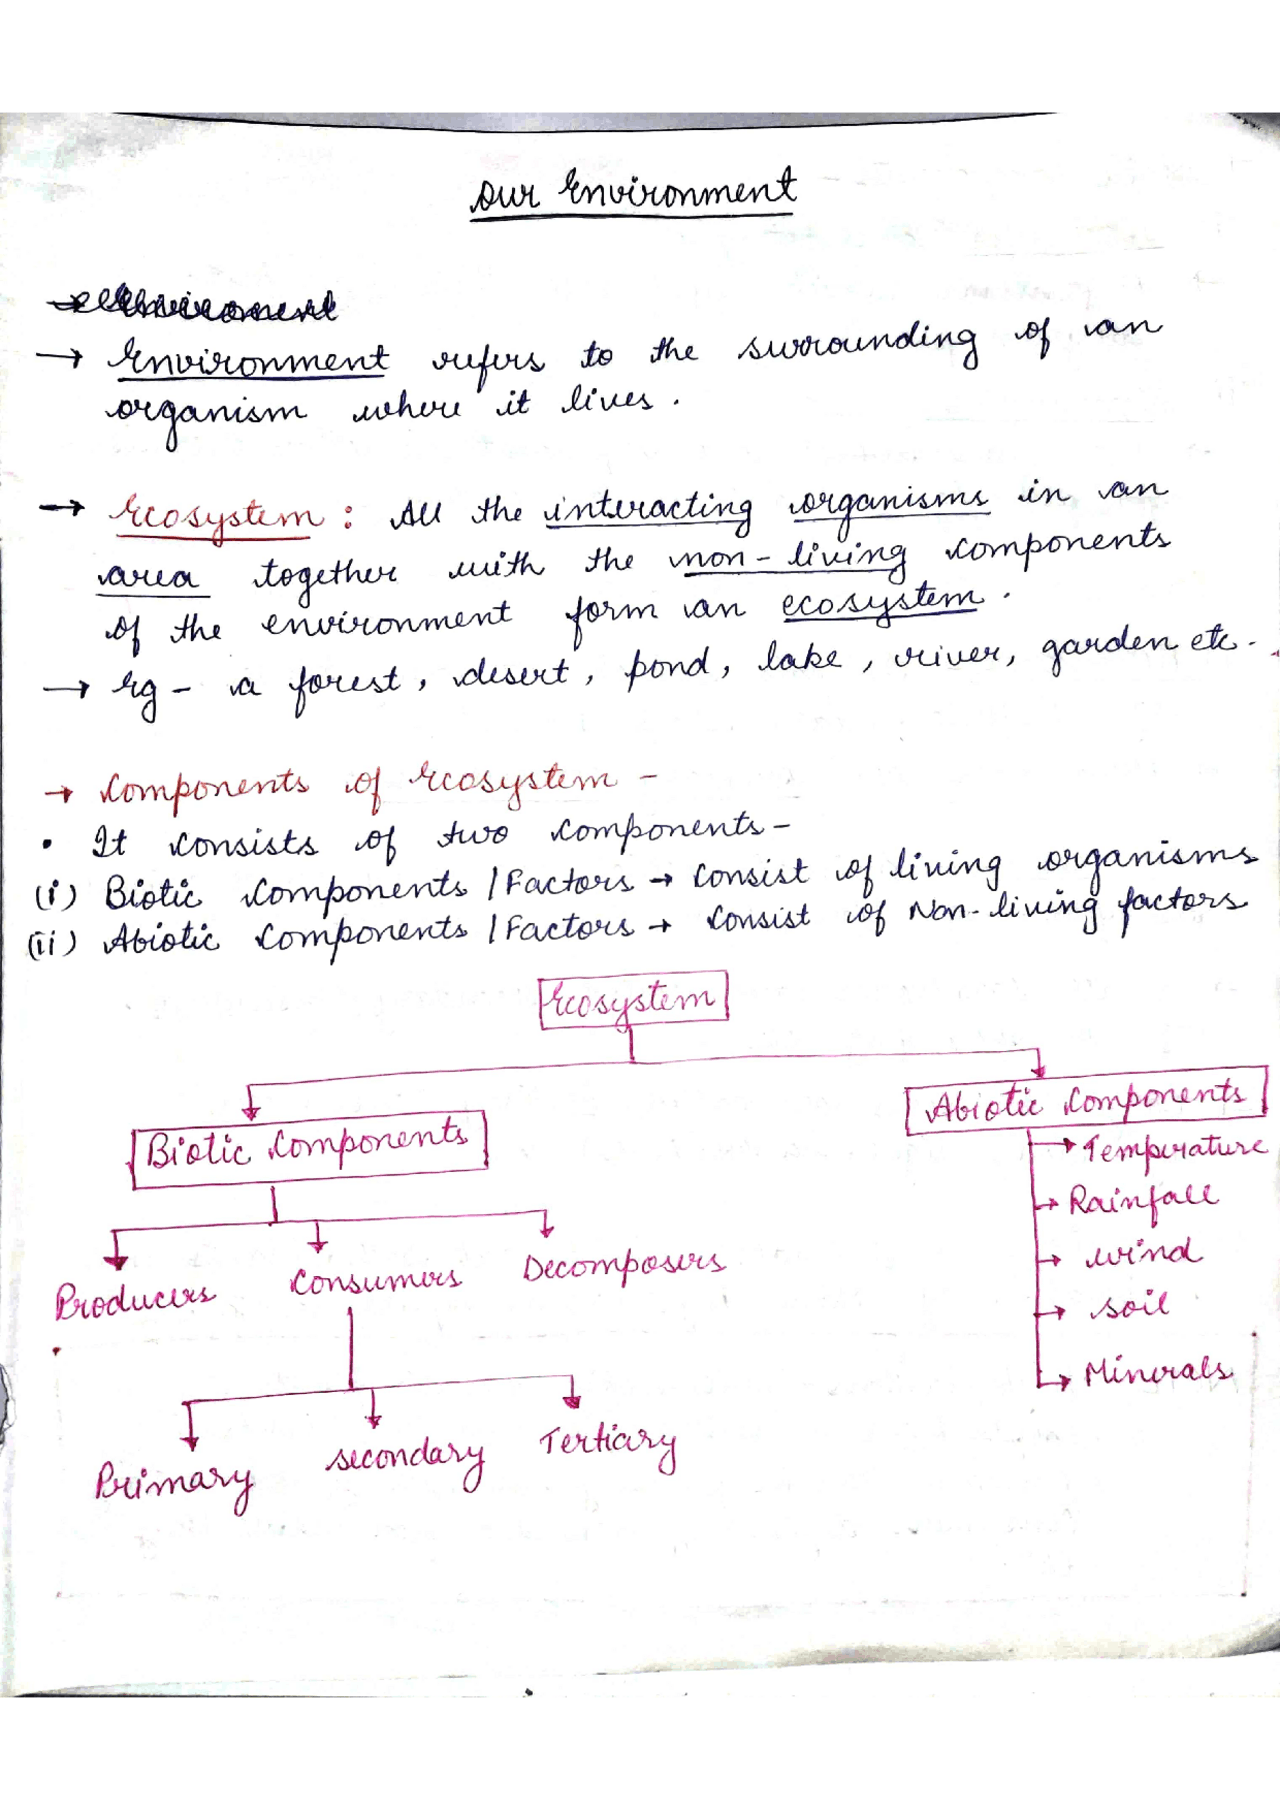 Our Environment
→ Environment
→ Environment refers to the surrounding of an
organism where it lives.
→ Ecosystem : All the interacting organisms in an
area together with the non-living components
of the environment form an ecosystem.
→ eg - a forest, desert, pond, lake, river, garden etc.
→ Components of Ecosystem -
• It consists of two components -
(i) Biotic Components / Factors → Consist of living organisms
(ii) Abiotic Components / Factors → Consist of Non-living factors
Ecosystem
Biotic Components
Abiotic Components
→ Temperature
→ Rainfall
→ wind
→ soil
→ Minerals
Producers
Consumers
Decomposers
Primary
secondary
Tertiary